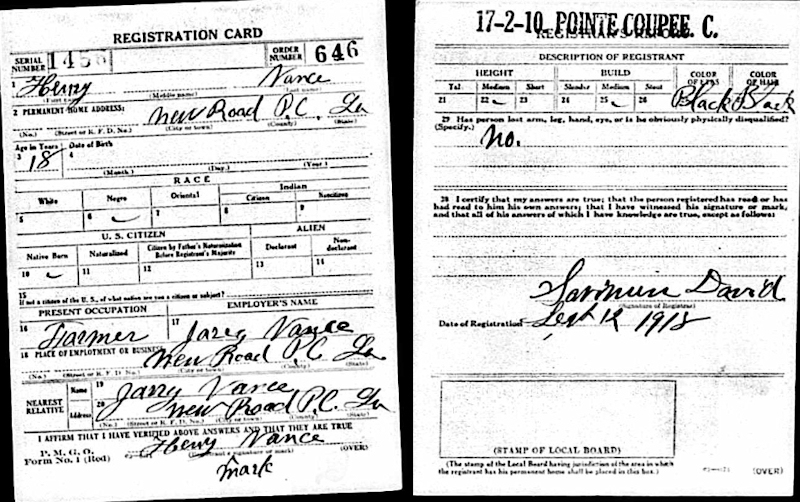 REGISTRATION CARD
SERIAL NUMBER 1456 ORDER NUMBER 646
1 Henry Vance
(First name) (Middle name) (Last name)
2 PERMANENT HOME ADDRESS:
New Road P.C. La
(No.) (Street or R. F. D. No.) (City or town) (County) (State)
Age in Years Date of Birth
3 18 4
(Month.) (Day.) (Year.)
RACE
White Negro Oriental Indian
Citizen Noncitizen
5 6 ✓ 7 8 9
U. S. CITIZEN ALIEN
Native Born Naturalized Citizen by Father's Naturalization Before Registrant's Majority Declarant Non-declarant
10 ✓ 11 12 13 14
15
If not a citizen of the U. S., of what nation are you a citizen or subject?
PRESENT OCCUPATION EMPLOYER'S NAME
16 Farmer 17 Vance
18 PLACE OF EMPLOYMENT OR BUSINESS:
New Road P.C. La
(No.) (Street or R. F. D. No.) (City or town) (County) (State)
NEAREST RELATIVE Name 19 Vance
Address 20 New Road P.C. La
(No.) (Street or R. F. D. No.) (City or town) (County) (State)
I AFFIRM THAT I HAVE VERIFIED ABOVE ANSWERS AND THAT THEY ARE TRUE
P. M. G. O.
Form No. 1 (Red) Henry Vance
(Registrant's signature or mark) (OVER)
mark
17-2-10. POINTE COUPEE. C.
REGISTRAR'S REPORT
DESCRIPTION OF REGISTRANT
HEIGHT BUILD COLOR OF EYES COLOR OF HAIR
Tall Medium Short Slender Medium Stout
21 22 ✓ 23 24 25 ✓ 26 Black Black
29 Has person lost arm, leg, hand, eye, or is he obviously physically disqualified?
(Specify.) No.
30 I certify that my answers are true; that the person registered has read or has
had read to him his own answers; that I have witnessed his signature or mark,
and that all of his answers of which I have knowledge are true, except as follows:
David
(Signature of Registrar)
Date of Registration Sept 12 1918
(STAMP OF LOCAL BOARD)
(The stamp of the Local Board having jurisdiction of the area in which
the registrant has his permanent home shall be placed in this box.)
(OVER)